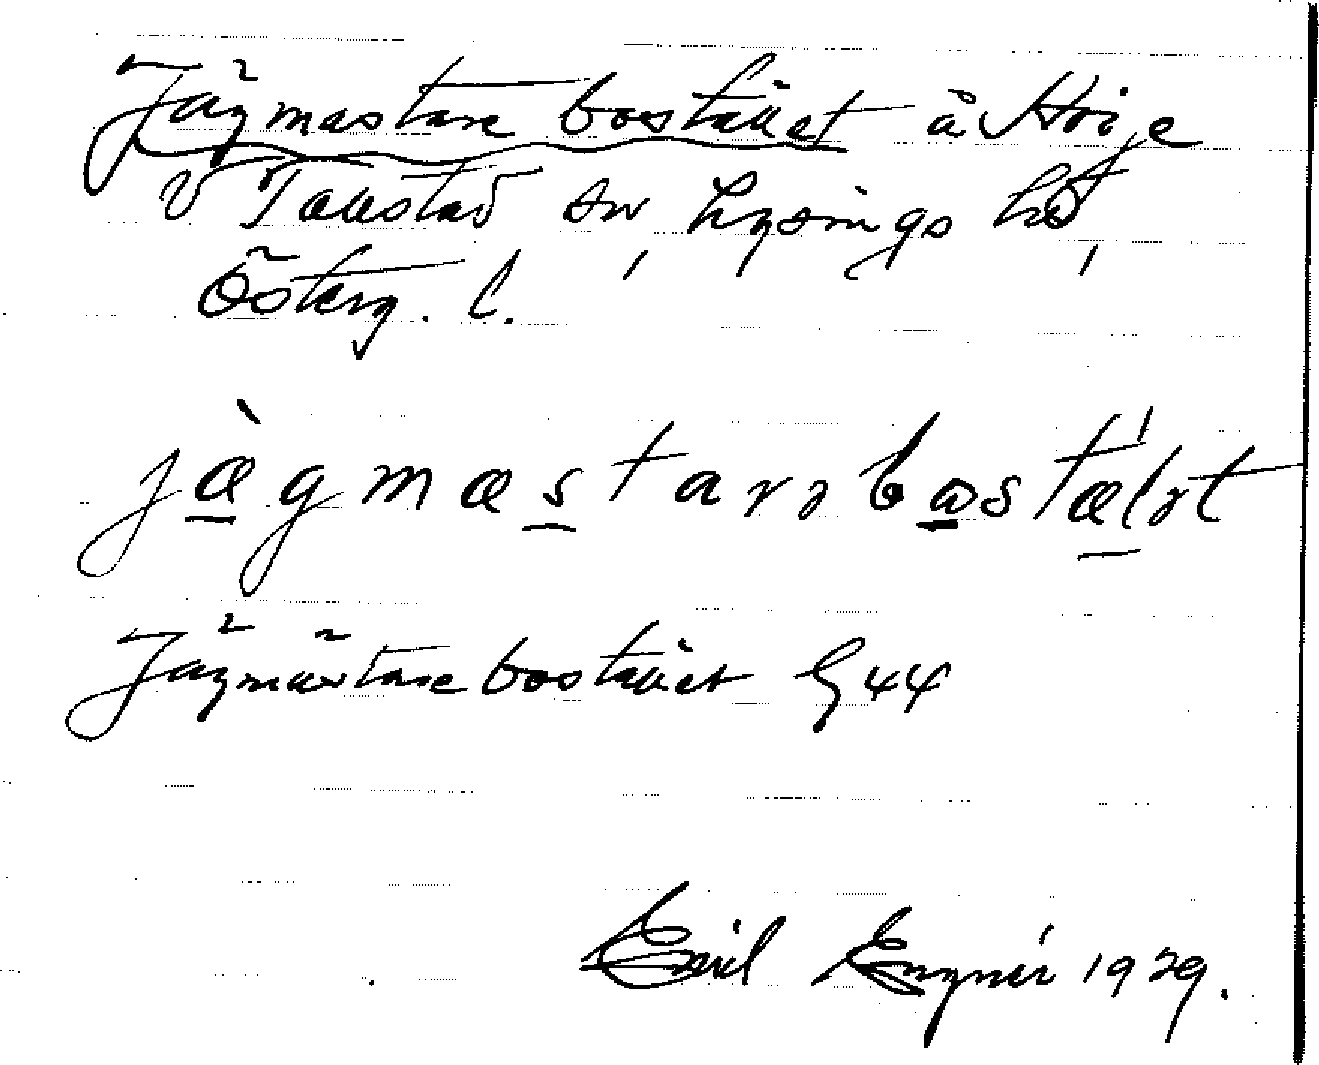 Jägmästarebostället å Höje
V Tollstad sn, Lysings hd,
Österg. l.
jägmæstarəbostæl'ət
Jägmästarebostället G44
Emil Engnér 1929.